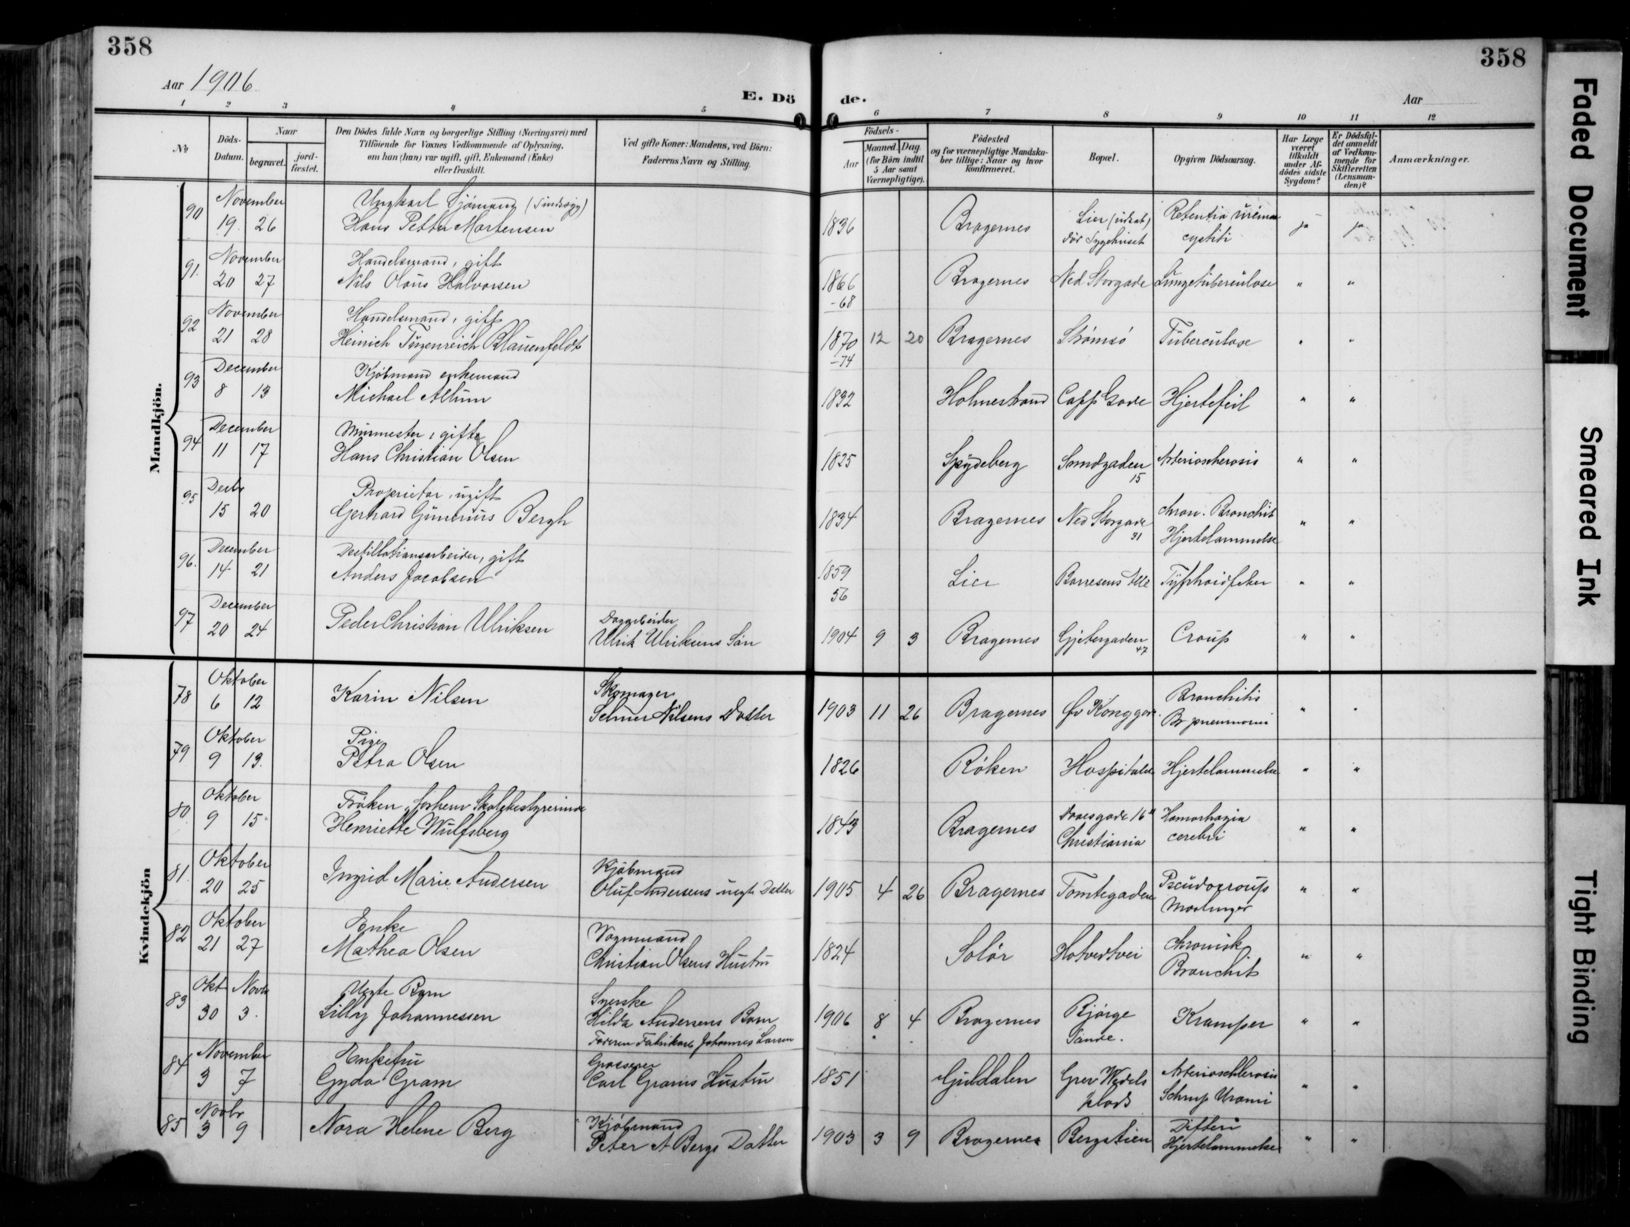 358
358
Aar 1906
E. Dö de.
Aar
1 2 3 4 5 6 7 8 9 10 11 12
No
Döds-Datum.
Naar
begravet.
jord-fæstet.
Den Dödes fulde Navn og borgerlige Stilling (Næringsvei) med
Tilföiende for Voxnes Vedkommende af Oplysning,
om han (hun) var ugift, gift, Enkemand (Enke)
eller fraskilt.
Ved gifte Koner: Mandens, ved Börn:
Faderens Navn og Stilling.
Födsels-
Aar
Maaned. Dag.
(for Börn indtil
5 Aar samt
Værnepligtige).
Födested
og for værnepligtige Mandska-
ber tillige: Naar og hvor
konfirmeret.
Bopæl.
Opgiven Dödsaarsag.
Har Læge
været
tilkaldt
under Af-
dödes sidste
Sygdom?
Er Dödsfal-
det anmeldt
af Vedkom-
mende for
Skifteretten
(Lensman-
den)?
Anmærkninger.
Mandkjön.
90 November 19 26 Ungkarl Sjömand (Sindssyg)
Hans Petter Mortensen 1836 Bragernes Lier (udsat) Retentio urinae cystiti ja ja
91. November 20 27 Handelsmand, gift
Nils Olaus Halvorsen 1866 -68 Bragernes Ned Storgade Lungetuberculose " "
92 November 21 28 Handelsmand, gift
Heinrich Blauenfeldt 1870 -74 12 20 Bragernes Strömsö Tuberculose " "
93 December 8 13 Kjöbmand enkemand
Michael Allum 1832 Holmestrand Gade Hjertefeil " "
94 December 11 17 Murmester, gift
Hans Christian Olsen 1825 Spydeberg Sandgaden 15 Arteriosclerosis " "
95 Decbr 15 20 Proprietær, ugift
Gerhard Bergh 1834 Bragernes Ned Storgade 31 chron. Bronchit
Hjertelammelse " "
96. December 14 21 Destillationsarbeider, gift
Anders Jacobsen 1859 56 Lier Börresens Alle " "
97 December 20 24 Peder Christian Ulriksen Dagarbeider
Ulrik Ulriksens Sön 1904 9 3 Bragernes Gjetergaden 47 Croup " "
Kvindekjön
78 Oktober 6 12 Karin Nilsen Skomager
Selmer Nilsens Datter 1903 11 26 Bragernes Öv Konggade Bronchitis
Br pneumoni " "
79 Oktober 9 13. Pige
Petra Olsen 1826 Röken Hospitalet Hjertelammelse " "
80. Oktober 9 15 Fröken, forhenv Skolebestyrerinde
Henriette Wulfsberg 1843 Bragernes Daasgade 16
Christiania Hæmorhagia
cerebri " "
81. Oktober 20 25 Ingrid Marie Andersen Kjöbmand
Oluf Andersens ægte Datter 1905 4 26 Bragernes Tomtegaden Pseudocroup
Mæslinger " "
82 Oktober 21 27 Enke
Mathea Olsen Vognmand
Christian Olsens Hustru 1824 Solör Hotvedtvei chronisk
Bronchit " "
83 Okt Novb 30 3. Uægte Barn
Lilly Johannessen Svenske
Hilda Andersens Barn
Faderen Fabrikarb Johannes Larsen 1906 8 4 Bragernes Björge
Tande. Kramper " "
84 November 3 7 Enkefru
Gyda Gram Grosserer
Carl Grams Hustru 1851 Guldalen Grev Wedels
plads Arteriosclerosis
Schrup Uræmi " "
85 Novbr 3 9 Nora Helene Berg Kjöbmand
Peter A Bergs Datter 1903 3 9 Bragernes Bergstien Difteri
Hjertelammelse " "
Faded Document
Smeared Ink
Tight Binding